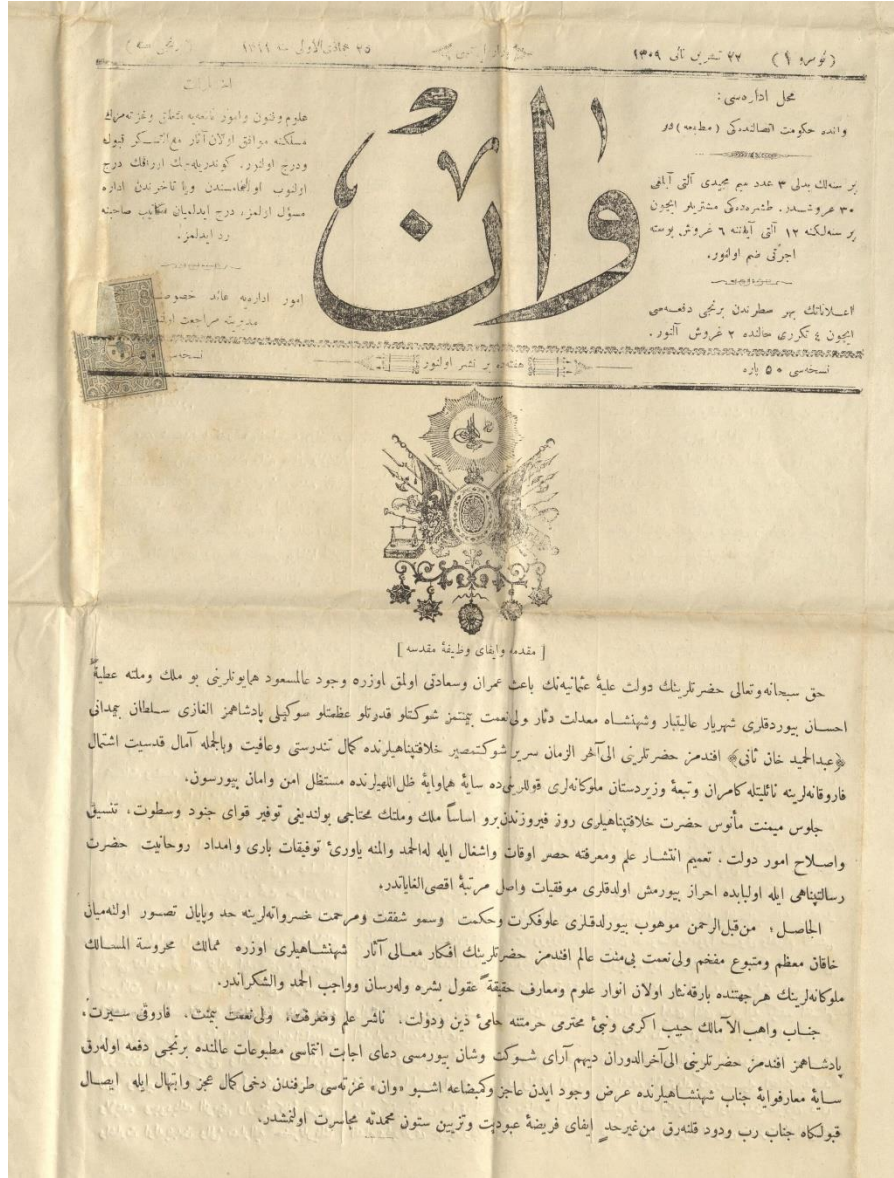 (نومرو ١) ٢٢ تشرین ثانی ١٣٠٩
٢٥ جماذی‌الاولی سنه
محل اداره‌سی:
وانده حکومت اتصالنده‌کی (مطبعه) در
بر سنه‌لك بدلی ٣ عدد سیم مجیدی آلتی آیلغی
٣٠ غروشـدر. طشره‌ده‌کی مشتریلر ایچون
بر سنه‌لکنه ١٢ آلتی آیلغنه ٦ غروش پوسته
اجرتی ضم اولنور.
اعـلاناتك بهر سطرندن برنجی دفعه‌سی
ایچون ٤ تکرری حالنده ٢ غروش آلنور.
وان
علوم وفنون وامور نافعه‌یه متعلق وغزته‌مزك
مسلکنه موافق اولان آثار مع‌التشـکر قبول
ودرج اولنور. کوندریله‌جك اوراقك درج
اولنوب اولنمامسندن ویا تأخرندن اداره
مسؤل اولمز. درج ایدلمیان مکاتیب صاحبنه
رد ایدلمز.
امور اداره‌یه عائد خصوصـ
مدیریته مراجعت اولنـ
نسخه‌سی ٥٠ پاره
هفته‌ده بر نشر اولنور
نسخه‌سی ٥٠
[ مقدمه وایفای وظیفهٔ مقدسه ]
حق سبحانه‌وتعالی حضرتلرینك دولت علیهٔ عثمانیه‌نك باعث عمران وسعادتی اولمق اوزره وجود عالمسعود همایونلرینی بو ملك وملته عطیةً
احسـان بیوردقلری شهریار عالیتبار وشهنشـاه معدلت دثار ولی‌نعمت بیمنتمز شوکتلو قدرتلو عظمتلو سوکیلی پادشاهمز الغازی سـلطان بیمدانی
﴿عبدالحمید خان ثانی﴾ افندمز حضرتلرینی الی‌آخر الزمان سریر شوکتمصیر خلافتپناهیلرنده کمال تندرستی وعافیت وبالجمله آمال قدسیت اشتمال
فاروقانه‌لرینه نائلیتله کامران وتبعهٔ وزیردستان ملوکانه‌لری قوللرینی‌ده سایهٔ هماوایهٔ ظل‌اللهیلرنده مستظل امن وامان بیورسون.
جلوس میمنت مأنوس حضرت خلافتپناهیلری روز فیروزندن‌برو اساساً ملك وملتك محتاجی بولندیغی توفیر قوای جنود وسطوت، تنسیق
واصـلاح امور دولت، تعمیم انتشـار علم ومعرفته حصر اوقات واشغال ایله له‌الحمد والمنه یاوریٔ توفیقات باری وامداد روحانیت حضرت
رسالتپناهی ایله اولبابده احراز بیورمش اولدقلری موفقیات واصل مرتبهٔ اقصی‌الغایاتدر.
الحاصـل؛ من‌قبل‌الرحمن موهوب بیورلدقلری علوفکرت وحکمت وسمو شفقت ومرحمت خسروانه‌لرینه حد وپایان تصـور اولنه‌میان
خاقان معظم ومتبوع مفخم ولی‌نعمت بی‌منت عالم افندمز حضرتلرینك افکار معـالی آثار شهنشـاهیلری اوزره ممالك محروسة المسـالك
ملوکانه‌لرینك هرجهتنده بارقه‌نثار اولان انوار علوم ومعارف حقیقةً عقول بشره وله‌رسان وواجب الحمد والشکراندر.
جنـاب واهب الآمالك حبیب اکرمی ونبیٔ محترمی حرمتنه حامیٔ دین ودولت، ناشر علم ومعرفت، ولی‌نعمت بیمنت، فاروقی سـیرت،
پادشـاهمز افندمز حضرتلرینی الی‌آخرالدوران دیهیم آرای شـوکت وشان بیورمسی دعای اجابت انتماسی مطبوعات عالمنده برنجی دفعه اوله‌رق
سـایهٔ معارفوایهٔ جناب شهنشـاهیلرنده عرض وجود ایدن عاجز وکمبضاعه اشـبو «وان» غزته‌سی طرفندن دخی کمال عجز وابتهال ایله ایصـال
قبولکاه جناب رب ودود قلنه‌رق من‌غیرحدٍ ایفای فریضهٔ عبودیت وتزیین ستون محمدته مجاسرت اولنمشدر.